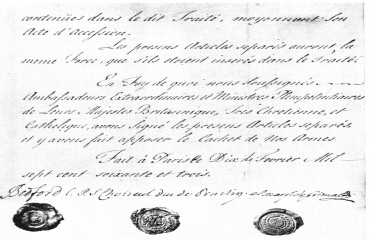 contenües dans le dit Traité, moyennant Son
Acte d'Accession.
Les presens Articles separés auront, la
meme Force, que s'ils étoient inserés dans le Traité.
En Foy de quoi nous soussignés
Ambassadeurs Extraordinaires et Ministres Plenipotentiaires
de Leurs Majestés Britannique, Très Chretienne, et
Catholique, avons Signé les presens Articles separés
et y avons fait apposer le Cachet de Nos Armes.
Fait à Paris le Dix de Fevrier Mil
sept cent soixante et trois.
Bedford C.P.S. Choiseul duc de Praslin el Marqs de Grimaldi